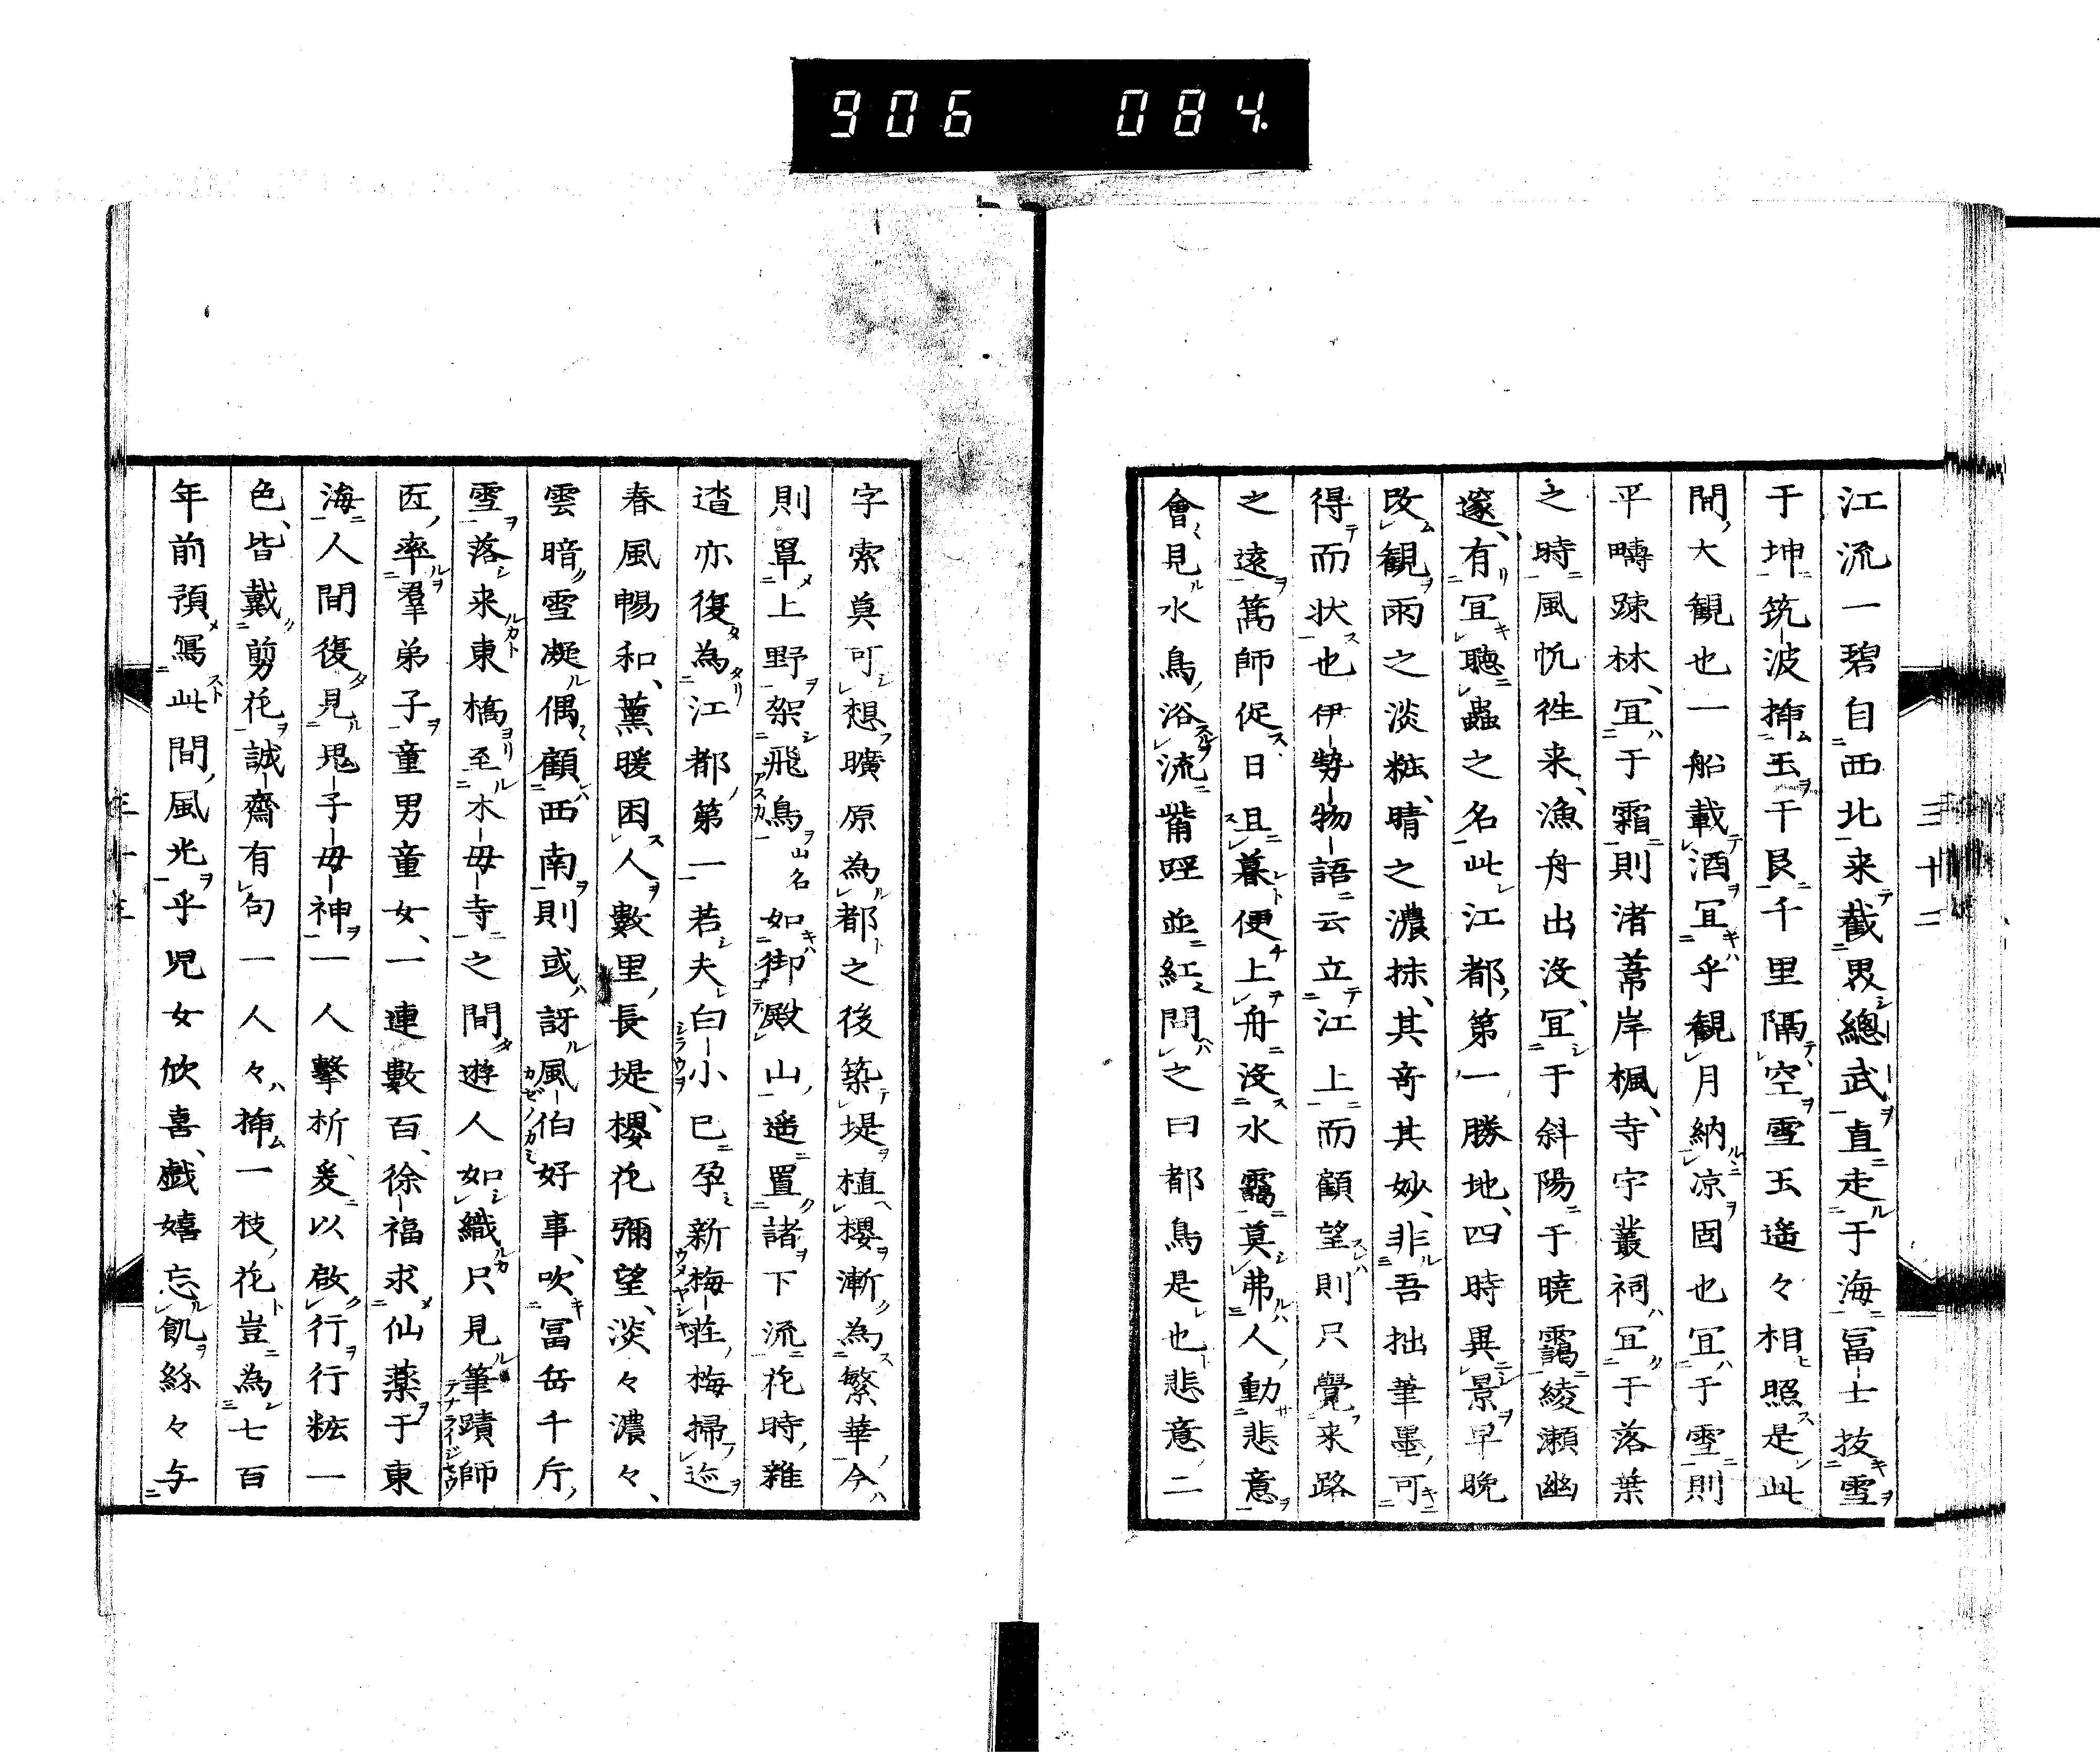 906 084.
三十二
江流一碧自西北来截界總武直走于海冨士抜雪
于坤筑波挿玉于艮千里隔空雪玉遙々相照是此
間大観也一船載酒冝乎観月納涼固也冝于雪則
平疇踈林冝于霜則渚葦岸楓寺宇叢祠冝于落葉
之時風帆徃来漁舟出没冝于斜陽于曉靄綾瀬幽
邃有冝聽蟲之名此江都第一勝地四時異景早晩
改観雨之淡粧晴之濃抹其竒其妙非吾拙筆墨可
得而状也伊勢物語云立江上而顧望則只覺来路
之遠篙師促日且暮便上舟没水靄莫弗人動悲意
會見水鳥浴流觜脛並紅問之曰都鳥是也悲意二
字索莫可想曠原為都之後築堤植櫻漸為繁華今
則罩上野架飛鳥山名如御殿山遙置諸下流花時雜
遝亦復為江都第一若夫白小已孕新梅荘梅掃巡
春風暢和薫暖困人數里長堤櫻花彌望淡々濃々
雲暗雪凝偶顧西南則或訝風伯好事吹冨岳千斤
雪落来東橋至木母寺之間遊人如織只見筆蹟師
匠率羣弟子童男童女一連數百徐福求仙薬于東
海人間復見鬼子母神一人擊柝爰以啟行行粧一
色皆戴剪花誠齋有句一人々挿一枝花豈為七百
年前預寫此間風光乎児女欣喜戯嬉忘飢絲々与